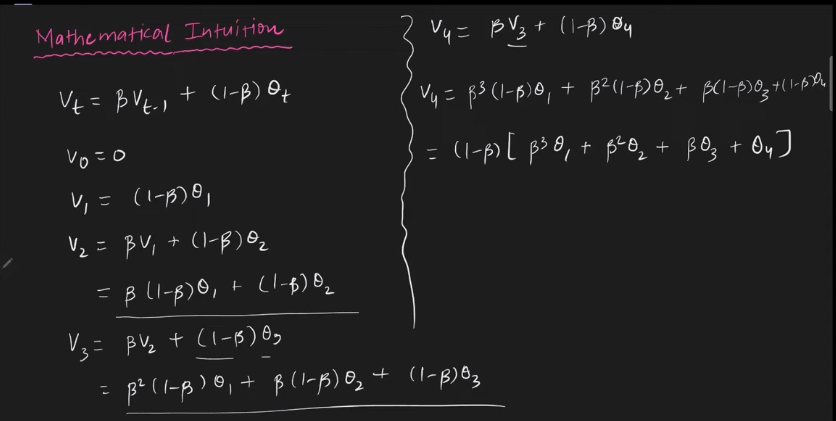 Mathematical Intuition
V_t = βV_{t-1} + (1-β)θ_t
V_0 = 0
V_1 = (1-β)θ_1
V_2 = βV_1 + (1-β)θ_2
= β(1-β)θ_1 + (1-β)θ_2
V_3 = βV_2 + (1-β)θ_3
= β²(1-β)θ_1 + β(1-β)θ_2 + (1-β)θ_3
V_4 = βV_3 + (1-β)θ_4
V_4 = β³(1-β)θ_1 + β²(1-β)θ_2 + β(1-β)θ_3 + (1-β)θ_4
= (1-β)[β³θ_1 + β²θ_2 + βθ_3 + θ_4]